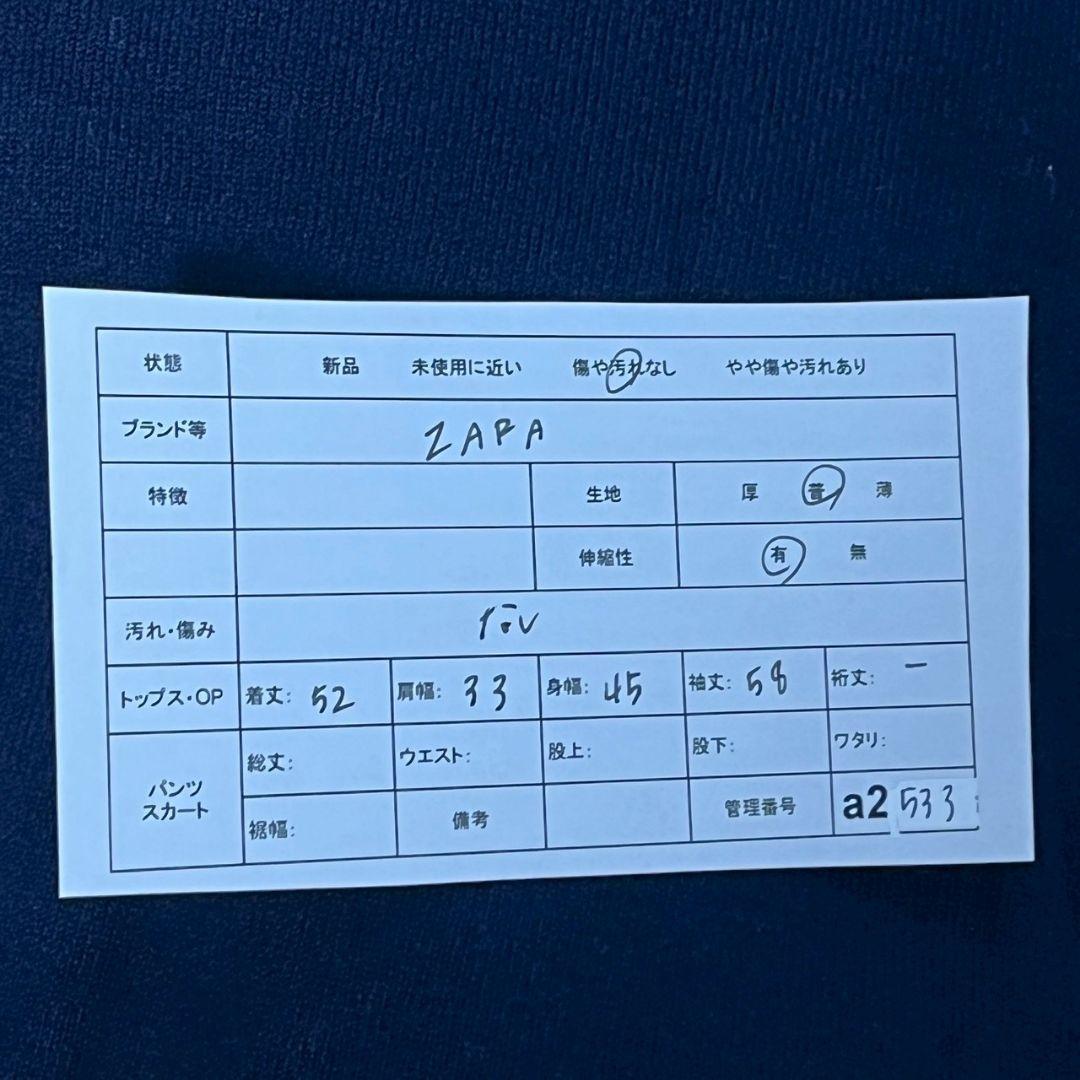 状態 新品 未使用に近い 傷や汚れなし やや傷や汚れあり
ブランド等 ZARA
特徴 生地 厚 普 薄
伸縮性 有 無
汚れ・傷み なし
トップス・OP 着丈: 52 肩幅: 33 身幅: 45 袖丈: 58 裄丈: ー
パンツ スカート 総丈: ウエスト: 股上: 股下: ワタリ:
裾幅: 備考 管理番号 a2 533